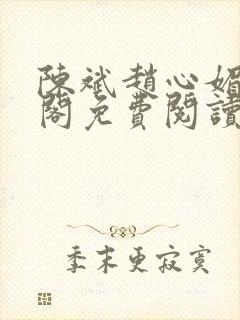 陳斌趙心媚
閣免費閱讀
季末更寂寞